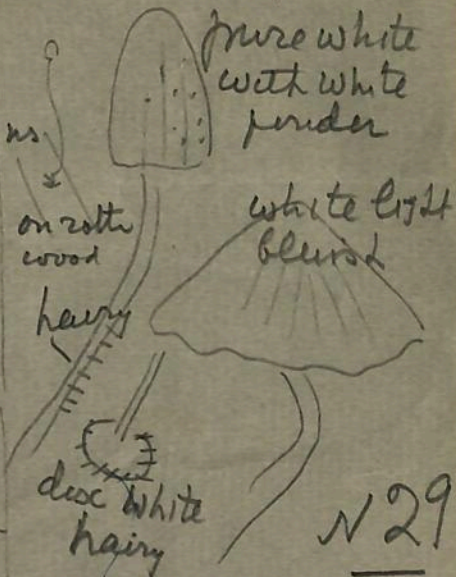 pure white
with white
powder
ns.
on rotten
wood
white light
hairy
disc white
hairy
N 29